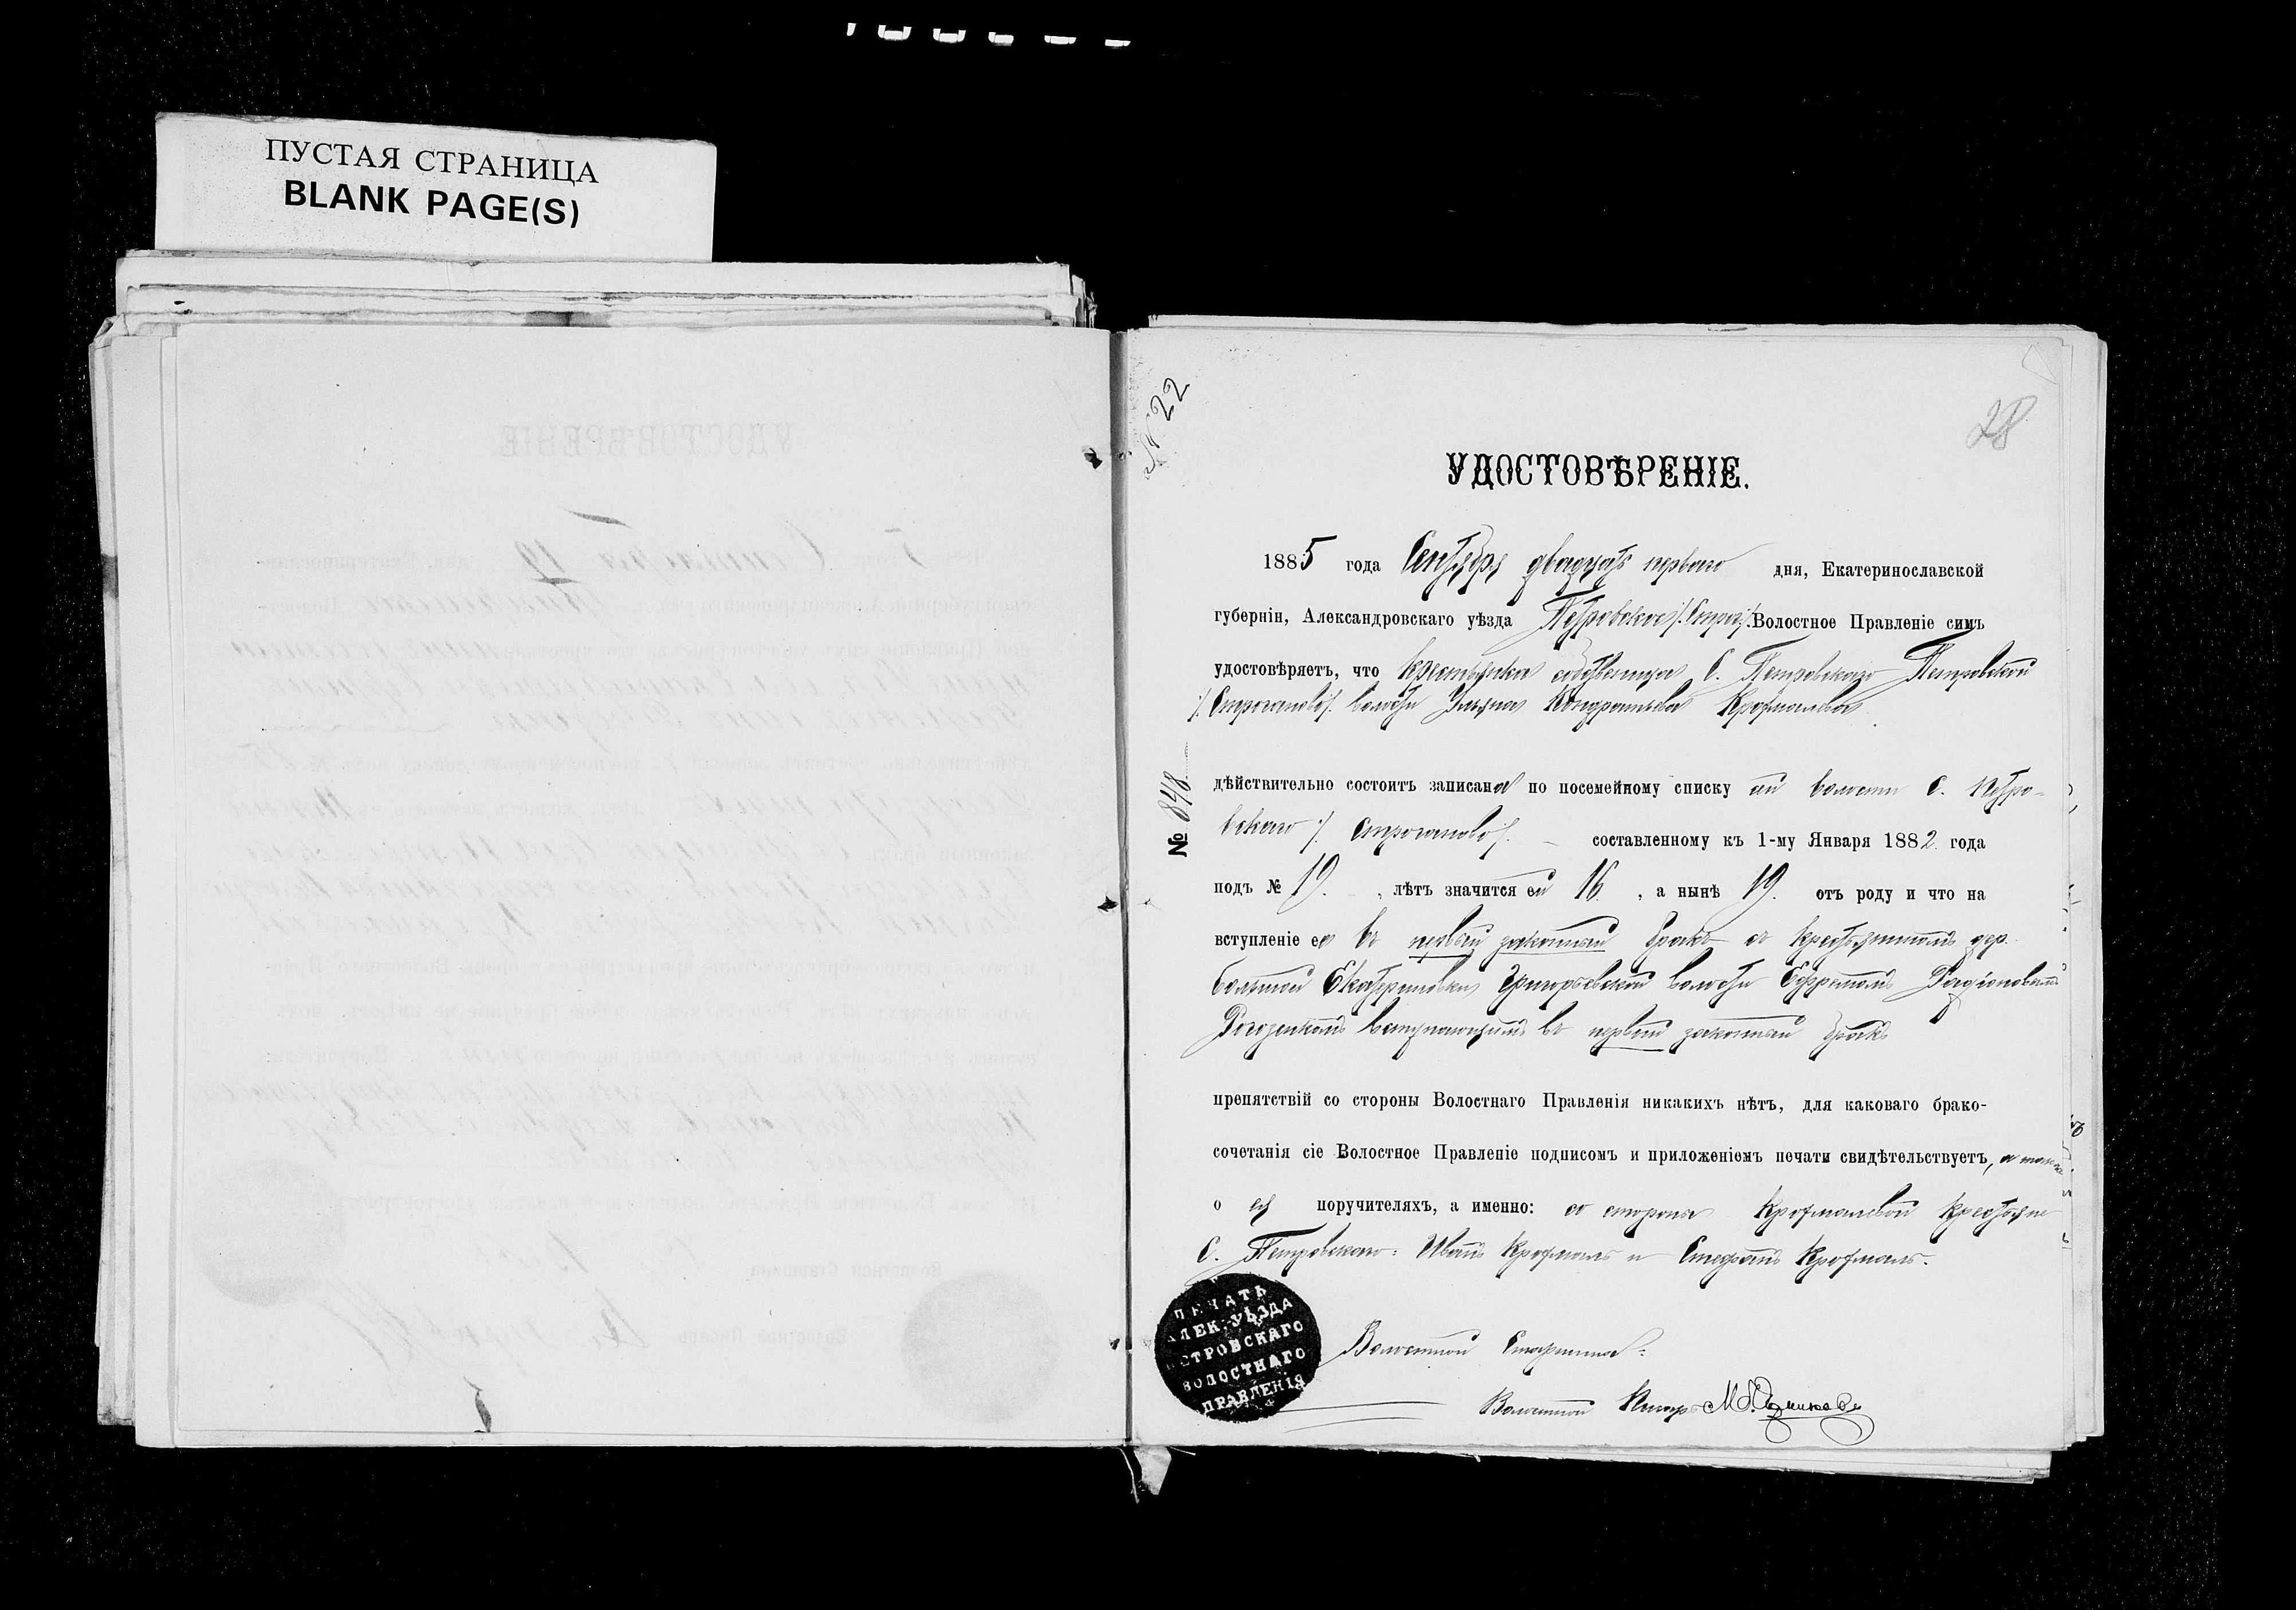 ПУСТАЯ СТРАНИЦА
BLANK PAGE(S)
№ 22
28
УДОСТОВѢРЕНІЕ.
1885 года Сентября двадцать первого дня, Екатеринославской
губерніи, Александровскаго уѣзда Петровское /:Строг:/ Волостное Правленіе симъ
удостовѣряетъ, что крестьянка собственица С. Петровскаго Петровской
/:Строганово:/ волости Ульяна Кондратьева Крохмалева
№ 848
дѣйствительно состоитъ записана по посемейному списку сей волости С. Петро-
вскаго /:Строганово:/ составленному къ 1-му Января 1882 года
подъ № 19. , лѣтъ значится ей 16 , а нынѣ 19. отъ роду и что на
вступленіе ея въ первый законный бракъ съ крестьяниномъ дер.
большой Екатериновки Григорьевской волости Ефремомъ Родіоновымъ
вступающимъ въ первый законный бракъ
препятствій со стороны Волостнаго Правленія никакихъ нѣтъ, для каковаго брако-
сочетанія сіе Волостное Правленіе подписомъ и приложеніемъ печати свидѣтельствуетъ, а также
о ея поручителяхъ, а именно: со стороны Крохмалевой крестьяне
С. Петровскаго: Иванъ Крохмаль и Стефанъ Крохмаль.
ПЕЧАТЬ
АЛЕК. УѢЗДА
ПЕТРОВСКАГО
ВОЛОСТНАГО
ПРАВЛЕНІЯ
Волостной Старшина:
Волостной Писарь